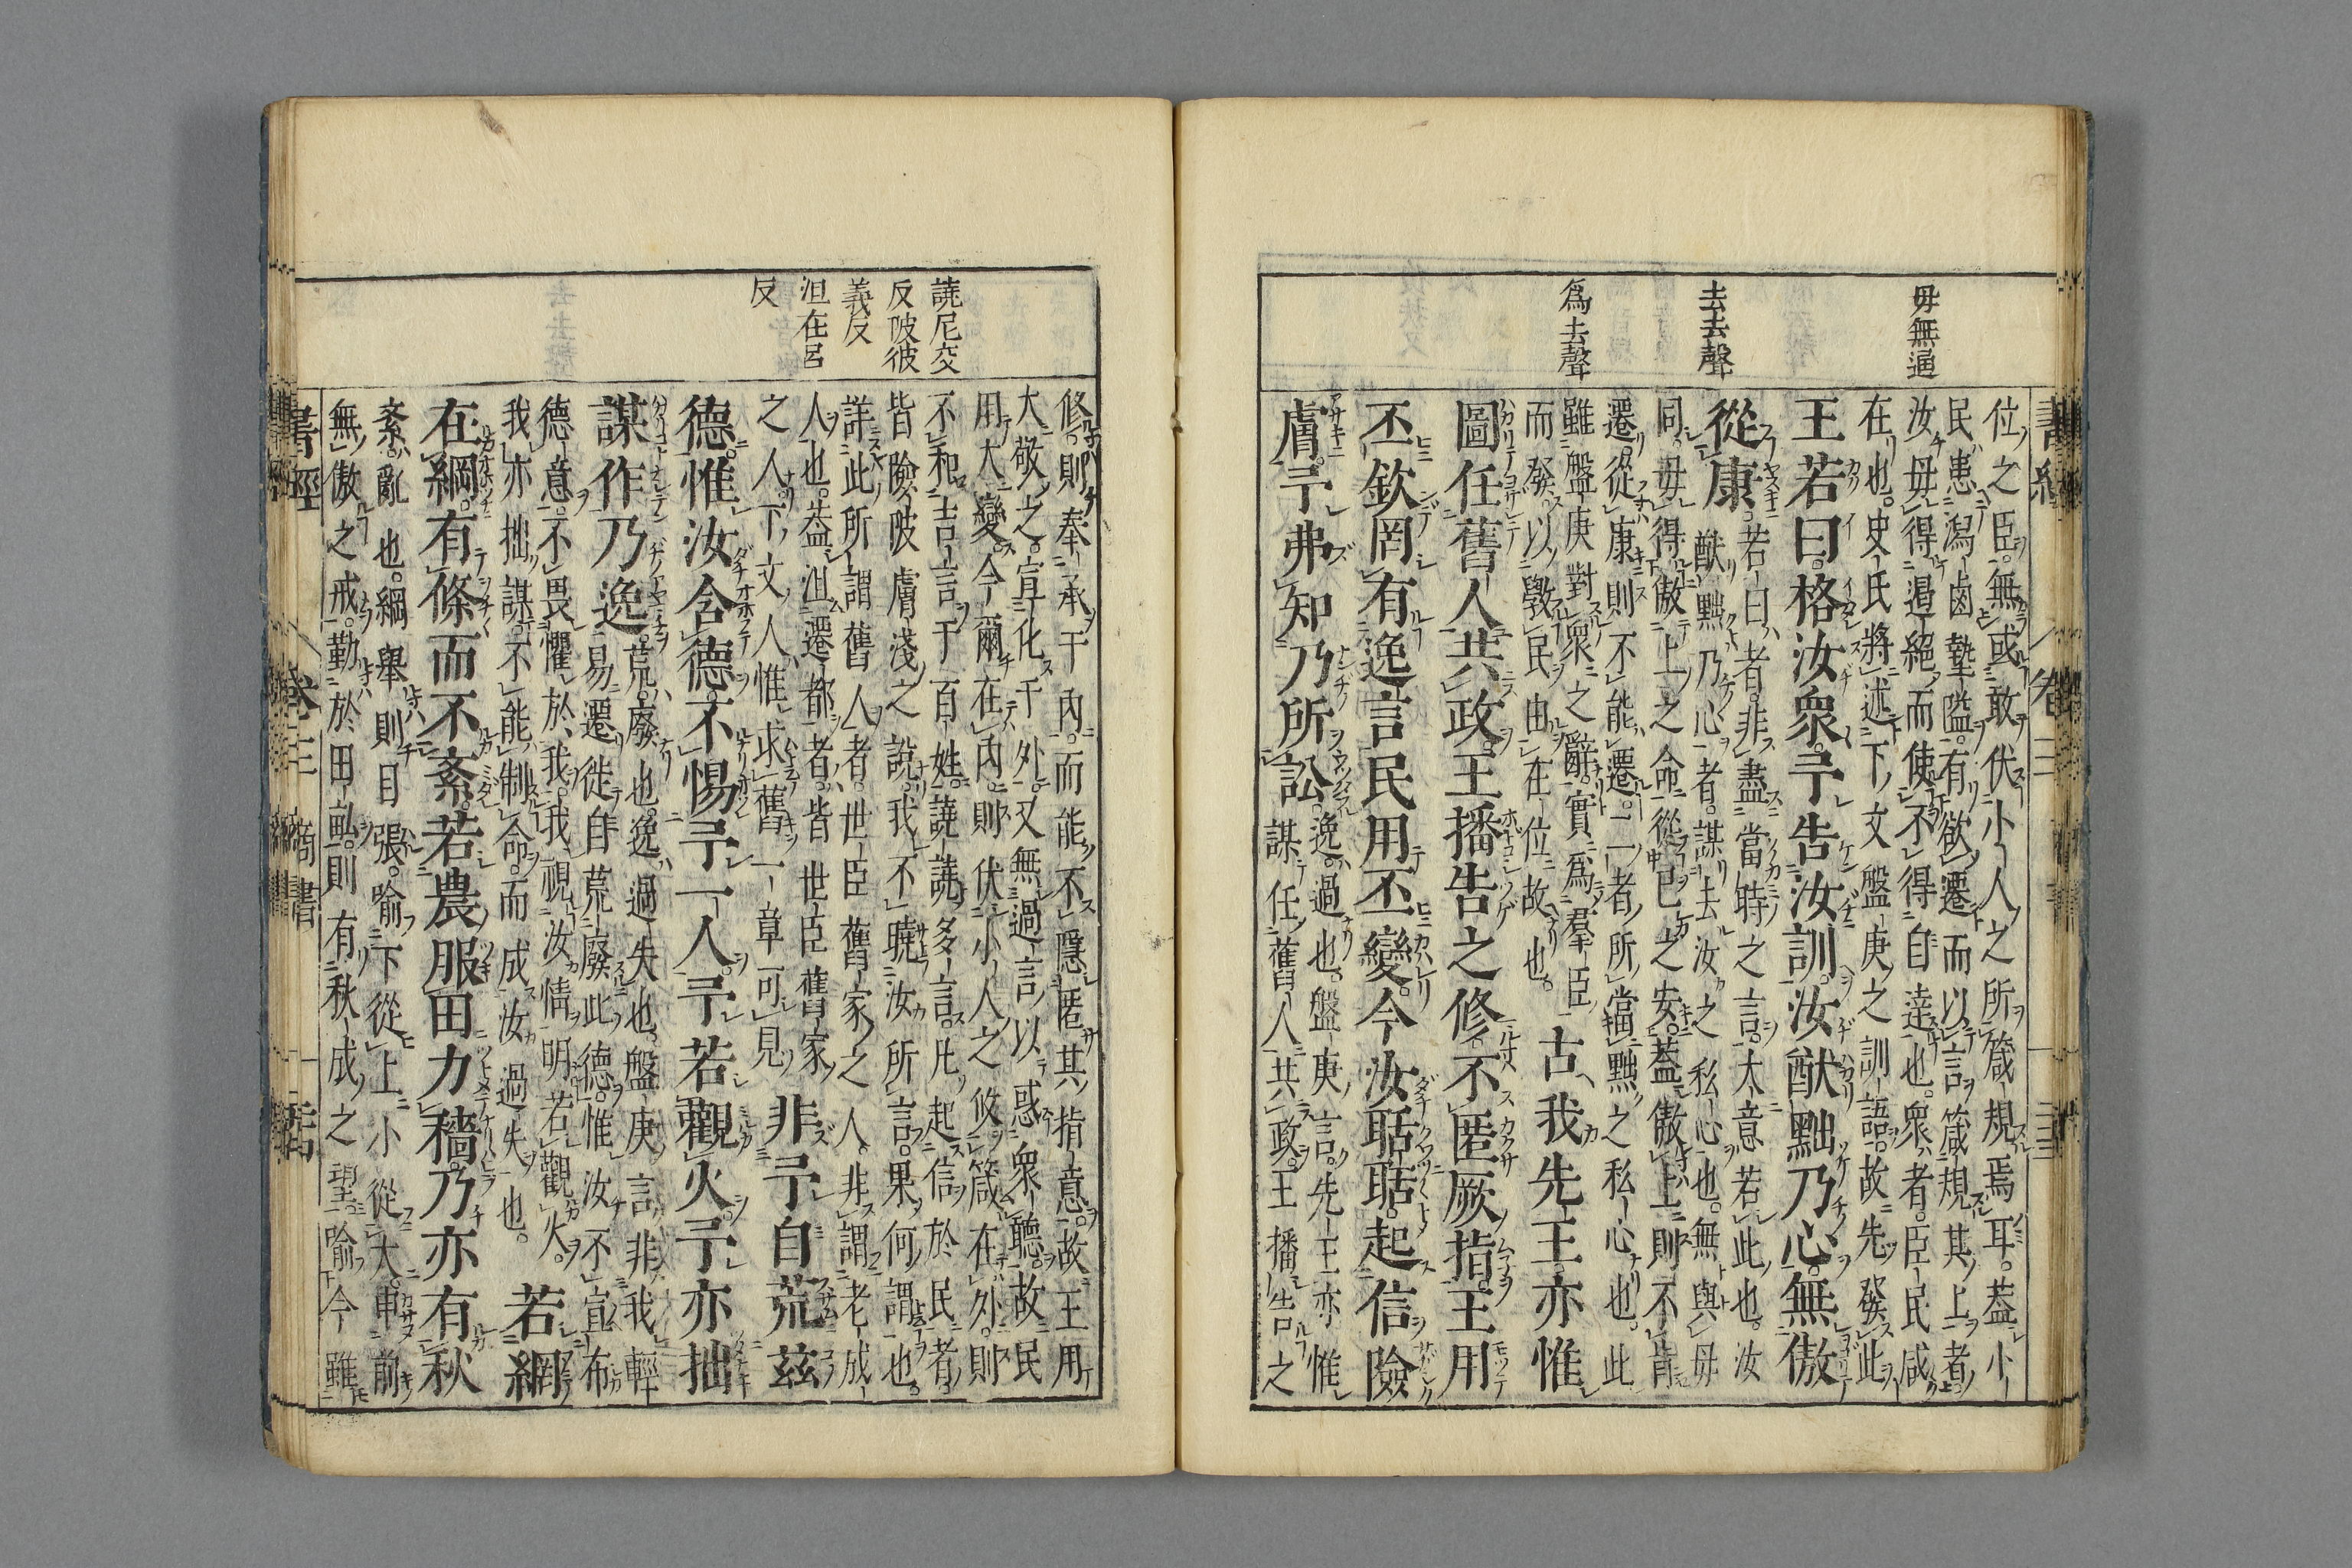 書經 卷三
毋無逼
去去聲
爲去聲
位之臣。無或敢伏小人之所箴規焉耳。蓋小
民患潟鹵墊隘。有欲遷而以言箴規其上者。
汝毋得遏絕而使不得自達也。衆者。臣民咸
在也。史氏將述下文盤庚之訓語。故先發此。
王若曰。格汝衆。予告汝訓。汝猷黜乃心。無傲
從康。若曰者。非盡當時之言。大意若此也。汝
猷黜乃心者。謀去汝之私心也。無與毋
同。毋得傲上之命。從已之安。蓋傲上則不肯
遷。從康則不能遷。二者所當黜之私心也。此
雖盤庚對衆之辭。實爲羣臣
而發。以斆民由在位故也。 古我先王亦惟
圖任舊人共政。王播告之修。不匿厥指。王用
丕欽。罔有逸言。民用丕變。今汝聒聒。起信險
膚。予弗知乃所訟。逸。過也。盤庚言。先王亦惟
謀任舊人共政。王播告之
譊尼交
反陂彼
義反
沮在呂
反
修。則奉承于内。而能不隱匿其指意。故王用
大敬之。宣化于外。又無過言以惑衆聽。故民
用大變。今爾在内。則伏小人之攸箴。在外。則
不和吉言于百姓。譊譊多言。凡起信於民者。
皆險陂膚淺之說。我不曉汝所言。果何謂也。
詳此所謂舊人者。世臣舊家之人。非謂老成
人也。蓋沮遷都者。皆世臣舊家
之人。下文人惟求舊一章可見 非予自荒茲
德。惟汝含德。不惕予一人。予若觀火。予亦拙
謀作乃逸。荒。廢也。逸。過失也。盤庚言。非我輕
易遷徙自荒廢此德。惟汝不宣布
德意。不畏懼於我。我視汝情明若觀火。
我亦拙謀。不能制命。而成汝過失也。 若網
在綱。有條而不紊。若農服田力穡。乃亦有秋
紊。亂也。綱舉則目張。喻下從上小從大。申前
無傲之戒。勤於田畝。則有秋成之望。喻今雖
書經 卷三 商書